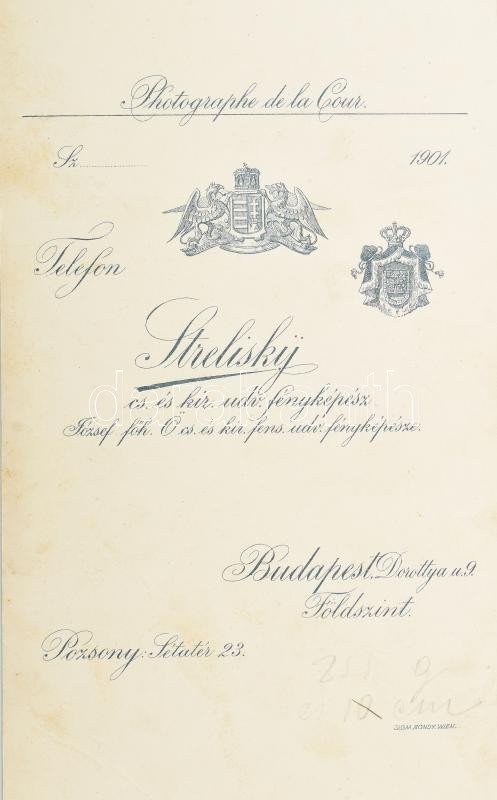 Photographe de la Cour.
Sz.................. 1901.
Telefon
Streliskÿ
cs. és kir. udv. fényképész
József főh. Ő cs. és kir. fens. udv. fényképésze.
Budapest, Dorottya u. 9.
Földszint.
Pozsony: Sétatér 23.
SIGM. BONDY. WIEN.